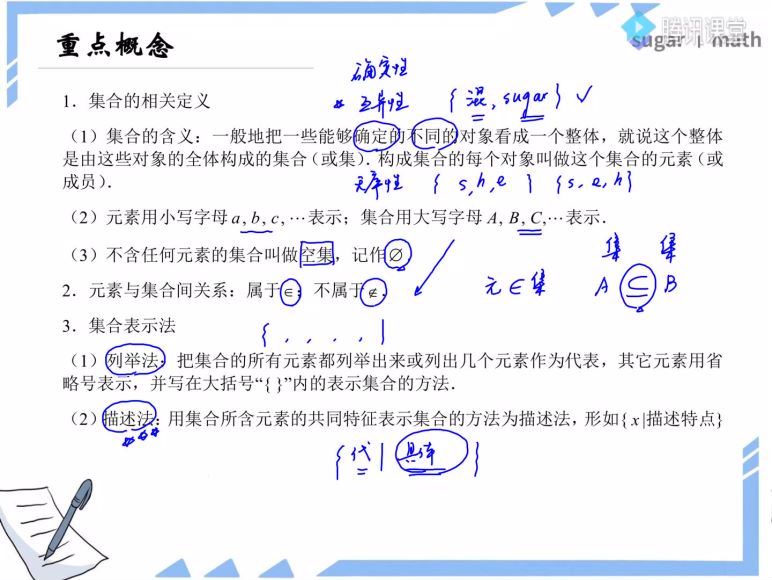 重点概念
腾讯课堂
sugar | math
确定性
1．集合的相关定义
* 互异性 {混, sugar} ✓
（1）集合的含义：一般地把一些能够确定的不同的对象看成一个整体，就说这个整体
是由这些对象的全体构成的集合（或集）．构成集合的每个对象叫做这个集合的元素（或
成员）．
无序性 { s, h, e } {s, e, h}
（2）元素用小写字母 a, b, c, ⋯表示；集合用大写字母 A, B, C,⋯表示．
（3）不含任何元素的集合叫做空集，记作∅．
集 集
2．元素与集合间关系：属于∈；不属于∉．
元 ∈ 集 A ⊆ B
3．集合表示法
{ , , , , }
（1）列举法：把集合的所有元素都列举出来或列出几个元素作为代表，其它元素用省
略号表示，并写在大括号“{ }”内的表示集合的方法．
（2）描述法：用集合所含元素的共同特征表示集合的方法为描述法，形如{ x |描述特点}
{代 | 具体 }